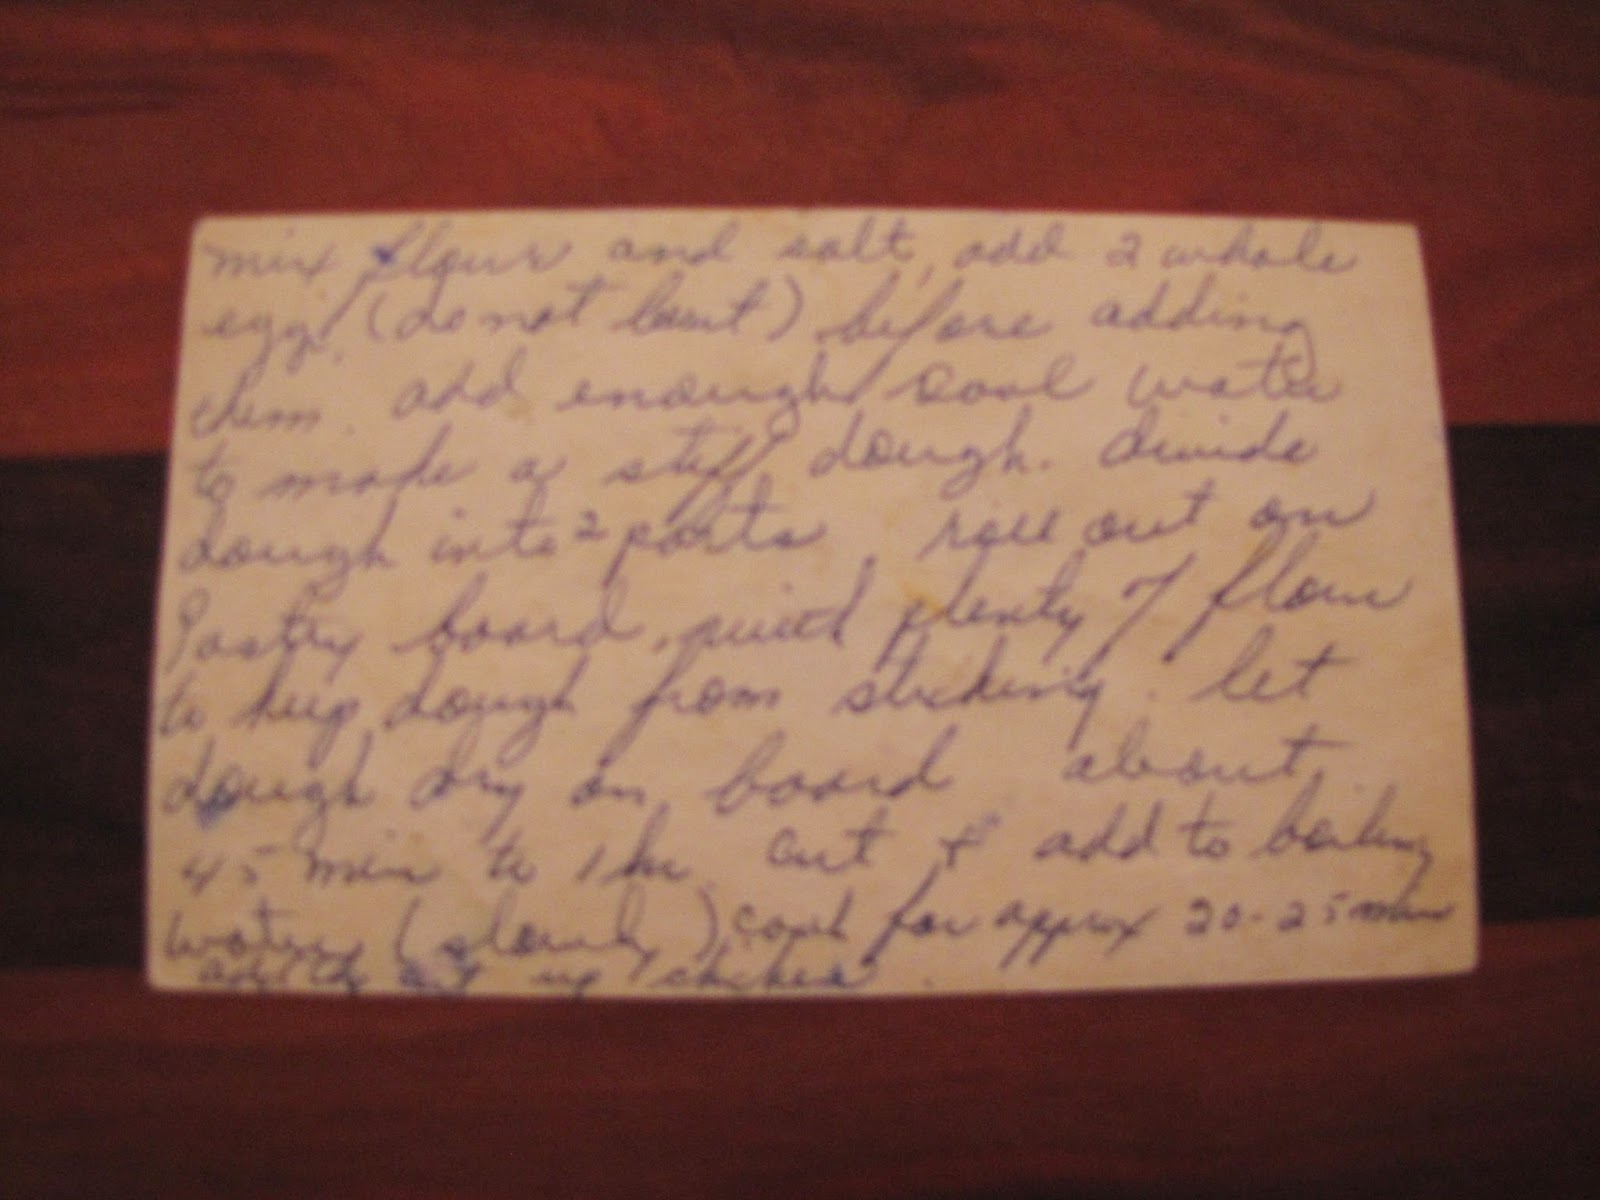 mix flour and salt, add 2 whole
egg, (do not beat) before adding
them. add enough cool water
to make a stiff dough. divide
dough into 2 parts, roll out on
Pastry board, with plenty of flour
to keep dough from sticking. let
dough dry on board about
45 min to 1 hr. cut & add to boiling
water (slowly), cook for approx 20-25 min
add the cut up chicken.